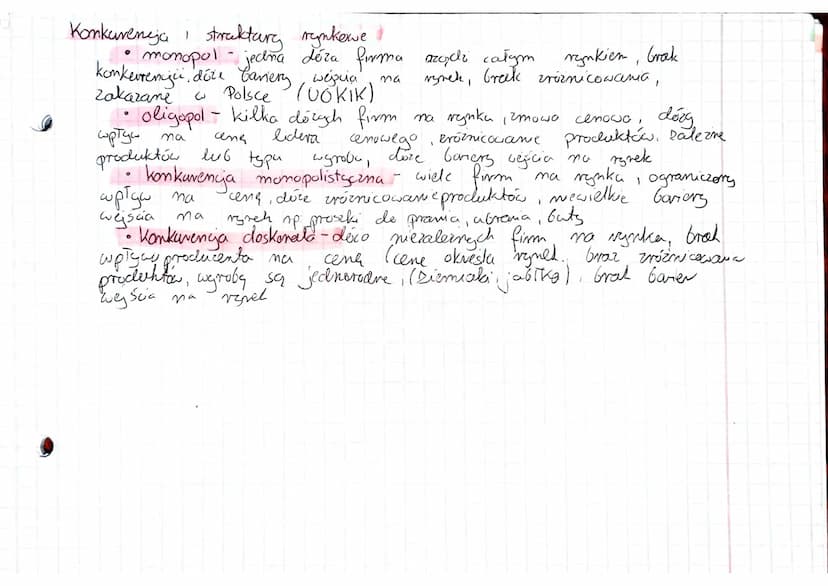 Konkurencja i struktury rynkowe
• monopol - jedna dóża firma rządzi całym rynkiem, brak
konkurencji, dóże bariery wejścia na rynek, brak zróżnicowania,
zakazane w Polsce (UOKIK)
• oligopol - kilka dóżych firm na rynku, zmowa cenowa, dóży
wpływ na cenę lidera cenowego, zróżnicowanie produktów zależne
produktów lub typu wyrobu, dóże bariery wejścia na rynek
• konkurencja monopolistyczna - wiele firm na rynku, ograniczony
wpływ na cenę, dóże zróżnicowanie produktów, niewielkie bariery
wejścia na rynek np proszki do prania, ubrania, buty
• Konkurencja doskonała - dóżo niezależnych firm na rynku, brak
wpływu producenta na cenę (cenę określa rynek, brak zróżnicowania
produktów, wyroby są jednorodne, (ziemniaki, jabłka), brak barier
wejścia na rynek